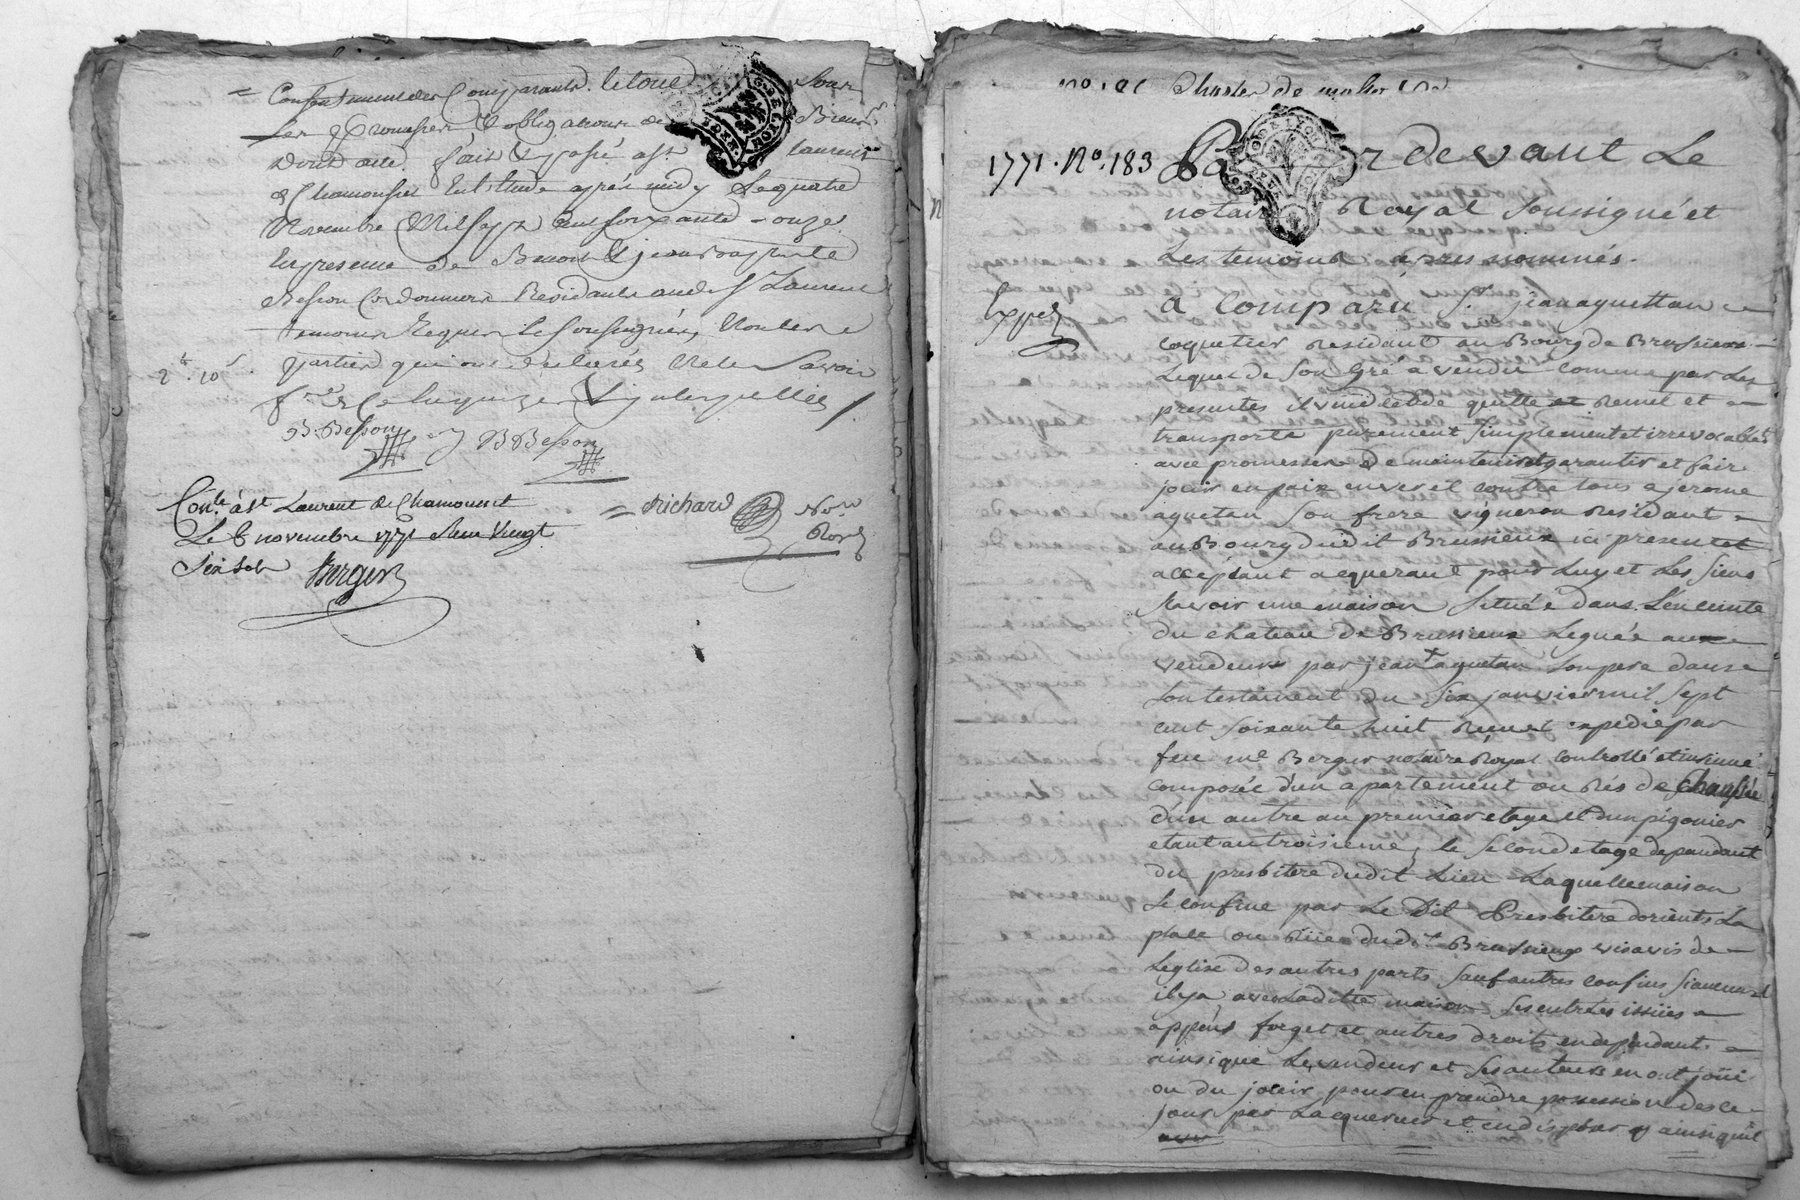 = Consentement des Comparants. le tout sous
Les promesses, & obligations de Biens
Dont acte fait & passé a St Laurent
de Chamousset En l'Etude après midy Le quatre
Novembre Mil Sept Cent soixante-onze
En presence de Benoit & jean Baptiste
Besson Cordonniers Residants aud. St Laurent
temoins Requis & Soussignés, Non les
parties qui ont declarés Ne le Savoir
2# 10s
de ce Enquizes & interpellées /
B. Besson B Besson
Conlé à St Laurent de Chamousset
Le 6 novembre 1771 Reçu Vingt
Six sols Berger
= Richard Nore
Royal
nº 181
1771. Nº. 183 Par devant Le
notaire Royal Soussigné et
Les temoins après nommés.
Expée
a comparu Sr. jean aguettan
coquetier Residant au Bourg de Brussieux
Lequel de Son Gré à vendu comme par Les
presentes il vend cede quitte et Remet et
transporte purement Simplement et irrevocablet
avec promesse de maintenir garantir et fair
jouir en paix envers et contre tous a jerome
aguetan Son frere vigneron Résidant
au Bourg dudit Brussieux ici present et
acceptant acquerant pour Luy et Les Siens
Savoir une maison Située dans L'enceinte
du chateau de Brussieux Leguée au
vendeur par jean aguetan Son pere dans
Son testament du Six janvier mil Sept
cent Soixante huit Reçu et expedié par
feu me Berger notaire Royal controllé et insinué
composée d'un apartement au Rés de chaussée
d'un autre au premier etage et d'un pigonier
etant au troisieme, le Second etage dependant
du presbitere dudit Lieu Laquelle maison
Se confine par Le Dit Presbitere d'orient, La
place ou Rüe dudt Brussieux visavis de
L'eglise des autres parts Sauf autres confins Si aucuns
il y a avec Laditte maison Ses entrées issües
appens forget et autres droits en dependant
ainsi que Le vendeur et Ses auteurs en ont joüi
ou du joüir pour en prendre possession des ce
jour par L'acquereur et en disposer ainsi qu'il